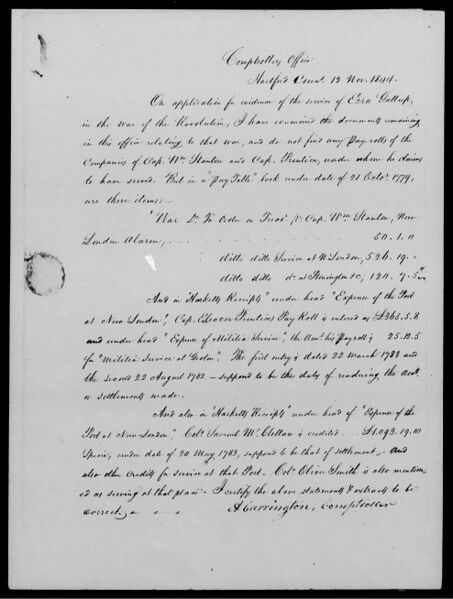 Comptrollers Office
Hartford Connt. 12 Nov. 1844.
On application for evidence of the service of Ezra Gallup,
in the war of the Revolution, I have examined the documents remaining
in this office relating to that war, and do not find any Pay rolls of the
Companies of Cap. Wm Stanton and Cap. Prentice, under whom he claims
to have served. But in a "Pay Table" book under date of 21 Octo. 1779,
are these items:—
"War Dr. To Order on Treasr. pr. Cap. Wm Stanton, New
London Alarm, 50.1.0
ditto ditto Service at N London, 526.19.
ditto ditto do at Stonington &c, 120.7.5
And in "Hasketts Receipts" under head "Expense of the Post
at New London", Cap. Prentices Pay Roll is entered as £365.5.8
and under head "Expense of Militia Service", the Amt. his Payroll, 25.12.5
for "Militia Service at Groton". The first entry is dated 22 March 1783 and
the second 22 August 1782 — supposed to be the dates of rendering the Acots.
or settlements made.
And also in "Hasketts Receipts" under head of "Expense of the
Post at New London", Colo. Samuel McClellan is credited £1,093.19.11
Specie, under date of 20 May 1783, supposed to be that of settlement, and
also other credits for service at that Post. Colo. Oliver Smith is also mention
ed as serving at that place. I certify the above statements & extracts to be
correct,
A Carrington, Comptroller